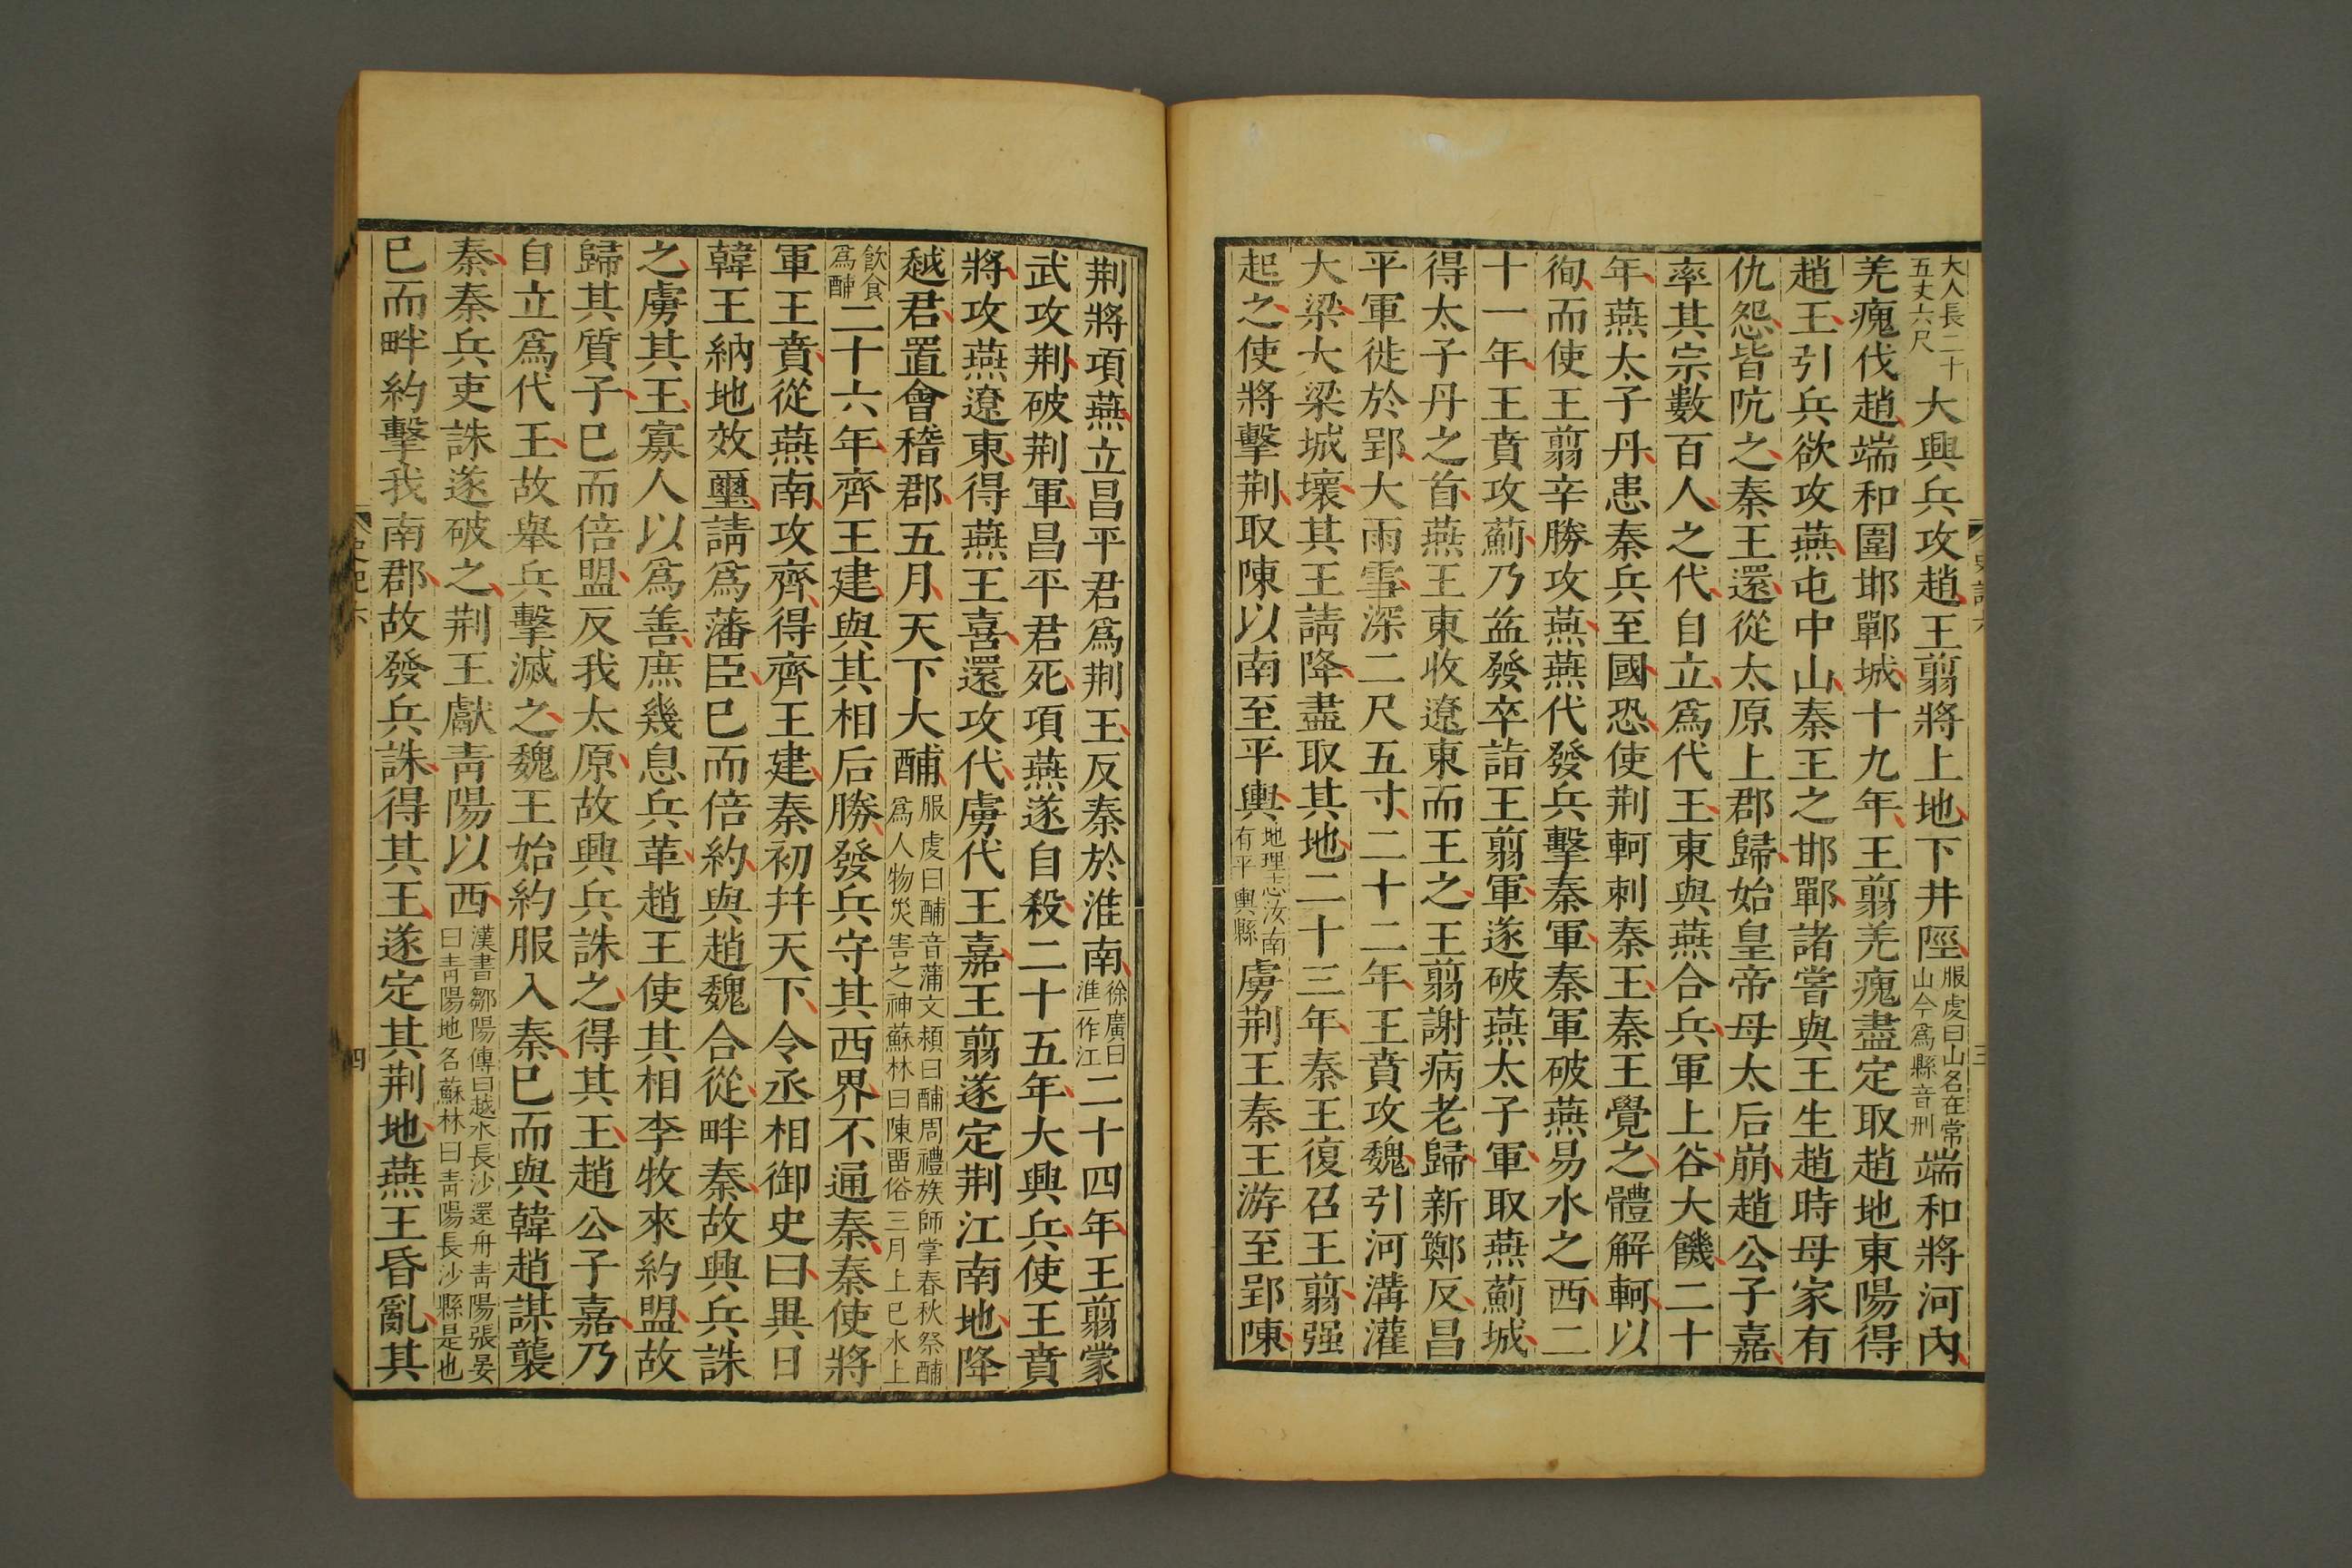 大人長二十
五丈六尺
大興兵攻趙王翦將上地下井陘
服虔曰山名在常
山今爲縣音刑
端和將河內
羌瘣伐趙端和圍邯鄲城十九年王翦羌瘣盡定取趙地東陽得
趙王引兵欲攻燕屯中山秦王之邯鄲諸嘗與王生趙時母家有
仇怨皆阬之秦王還從太原上郡歸始皇帝母太后崩趙公子嘉
率其宗數百人之代自立爲代王東與燕合兵軍上谷大饑二十
年燕太子丹患秦兵至國恐使荆軻刺秦王秦王覺之體解軻以
徇而使王翦辛勝攻燕燕代發兵擊秦軍秦軍破燕易水之西二
十一年王賁攻薊乃益發卒詣王翦軍遂破燕太子軍取燕薊城
得太子丹之首燕王東收遼東而王之王翦謝病老歸新鄭反昌
平軍徙於郢大雨雪深二尺五寸二十二年王賁攻魏引河溝灌
大梁大梁城壞其王請降盡取其地二十三年秦王復召王翦强
起之使將擊荆取陳以南至平輿
地理志汝南
有平輿縣
虜荆王秦王游至郢陳
史記六
三
荆將項燕立昌平君爲荆王反秦於淮南
徐廣曰
淮一作江
二十四年王翦蒙
武攻荆破荆軍昌平君死項燕遂自殺二十五年大興兵使王賁
將攻燕遼東得燕王喜還攻代虜代王嘉王翦遂定荆江南地降
越君置會稽郡五月天下大酺
服虔曰酺音蒲文頴曰酺周禮族師掌春秋祭酺
爲人物烖害之神蘇林曰陳畱俗三月上巳水上
飮食
爲酺
二十六年齊王建與其相后勝發兵守其西界不通秦秦使將
軍王賁從燕南攻齊得齊王建秦初幷天下令丞相御史曰異日
韓王納地效璽請爲藩臣已而倍約與趙魏合從畔秦故興兵誅
之虜其王寡人以爲善庶幾息兵革趙王使其相李牧來約盟故
歸其質子已而倍盟反我太原故興兵誅之得其王趙公子嘉乃
自立爲代王故舉兵擊滅之魏王始約服入秦已而與韓趙謀襲
秦秦兵吏誅遂破之荆王獻靑陽以西
漢書鄒陽傳曰越水長沙還舟靑陽張晏
曰靑陽地名蘇林曰靑陽長沙縣是也
已而畔約擊我南郡故發兵誅得其王遂定其荆地燕王昏亂其
史記六
四